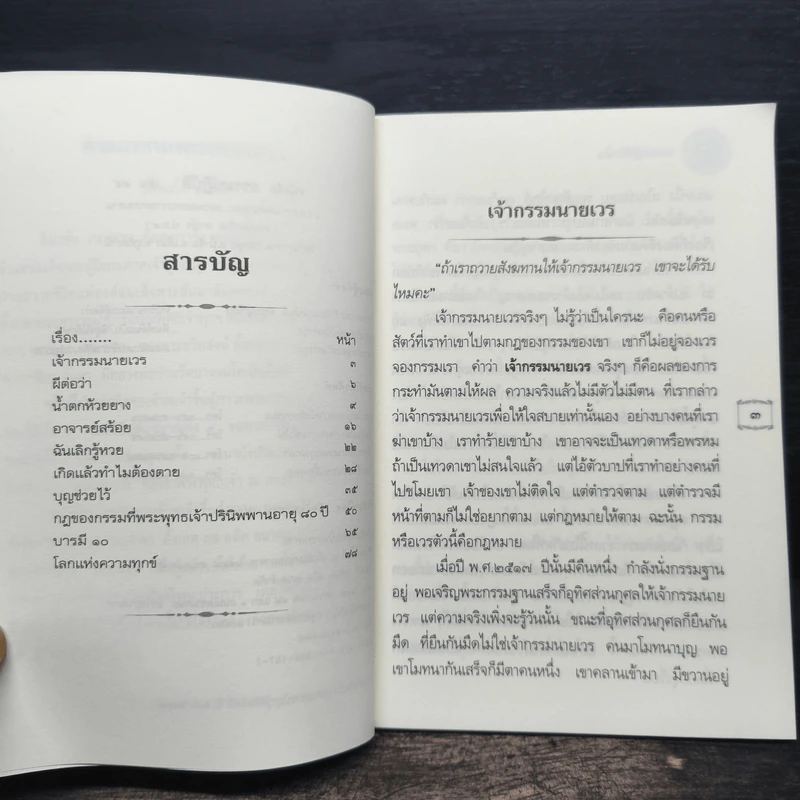 สารบัญ
เรื่อง....... หน้า
เจ้ากรรมนายเวร ๓
ผีต่อว่า ๖
น้ำตกห้วยยาง ๙
อาจารย์สร้อย ๑๖
ฉันเลิกรู้หวย ๒๒
เกิดแล้วทำไมต้องตาย ๒๘
บุญช่วยไว้ ๓๕
กฎของกรรมที่พระพุทธเจ้าปรินิพพานอายุ ๘๐ ปี ๕๐
บารมี ๑๐ ๖๕
โลกแห่งความทุกข์ ๗๘
เจ้ากรรมนายเวร
"ถ้าเราถวายสังฆทานให้เจ้ากรรมนายเวร เขาจะได้รับ
ไหมคะ"
เจ้ากรรมนายเวรจริงๆ ไม่รู้ว่าเป็นใครนะ คือคนหรือ
สัตว์ที่เราทำเขาไปตามกฎของกรรมของเขา เขาก็ไม่อยู่จองเวร
จองกรรมเรา คำว่า เจ้ากรรมนายเวร จริงๆ ก็คือผลของการ
กระทำมันตามให้ผล ความจริงแล้วไม่มีตัวไม่มีตน ที่เรากล่าว
ว่าเจ้ากรรมนายเวรเพื่อให้ใจสบายเท่านั้นเอง อย่างบางคนที่เรา
ฆ่าเขาบ้าง เราทำร้ายเขาบ้าง เขาอาจจะเป็นเทวดาหรือพรหม
ถ้าเป็นเทวดาเขาไม่สนใจแล้ว แต่ไอ้ตัวบาปที่เราทำอย่างคนที่
ไปขโมยเขา เจ้าของเขาไม่ติดใจ แต่ตำรวจตาม แต่ตำรวจมี
หน้าที่ตามก็ไม่ใช่อยากตาม แต่กฎหมายให้ตาม ฉะนั้น กรรม
หรือเวรตัวนี้คือกฎหมาย
๓
เมื่อปี พ.ศ.๒๕๑๗ ปีนั้นมีคืนหนึ่ง กำลังนั่งกรรมฐาน
อยู่ พอเจริญพระกรรมฐานเสร็จก็อุทิศส่วนกุศลให้เจ้ากรรมนาย
เวร แต่ความจริงเพิ่งจะรู้วันนั้น ขณะที่อุทิศส่วนกุศลก็ยืนกัน
มืด ที่ยืนกันมืดไม่ใช่เจ้ากรรมนายเวร คนมาโมทนาบุญ พอ
เขาโมทนากันเสร็จก็มีตาคนหนึ่ง เขาคลานเข้ามา มีขวานอยู่